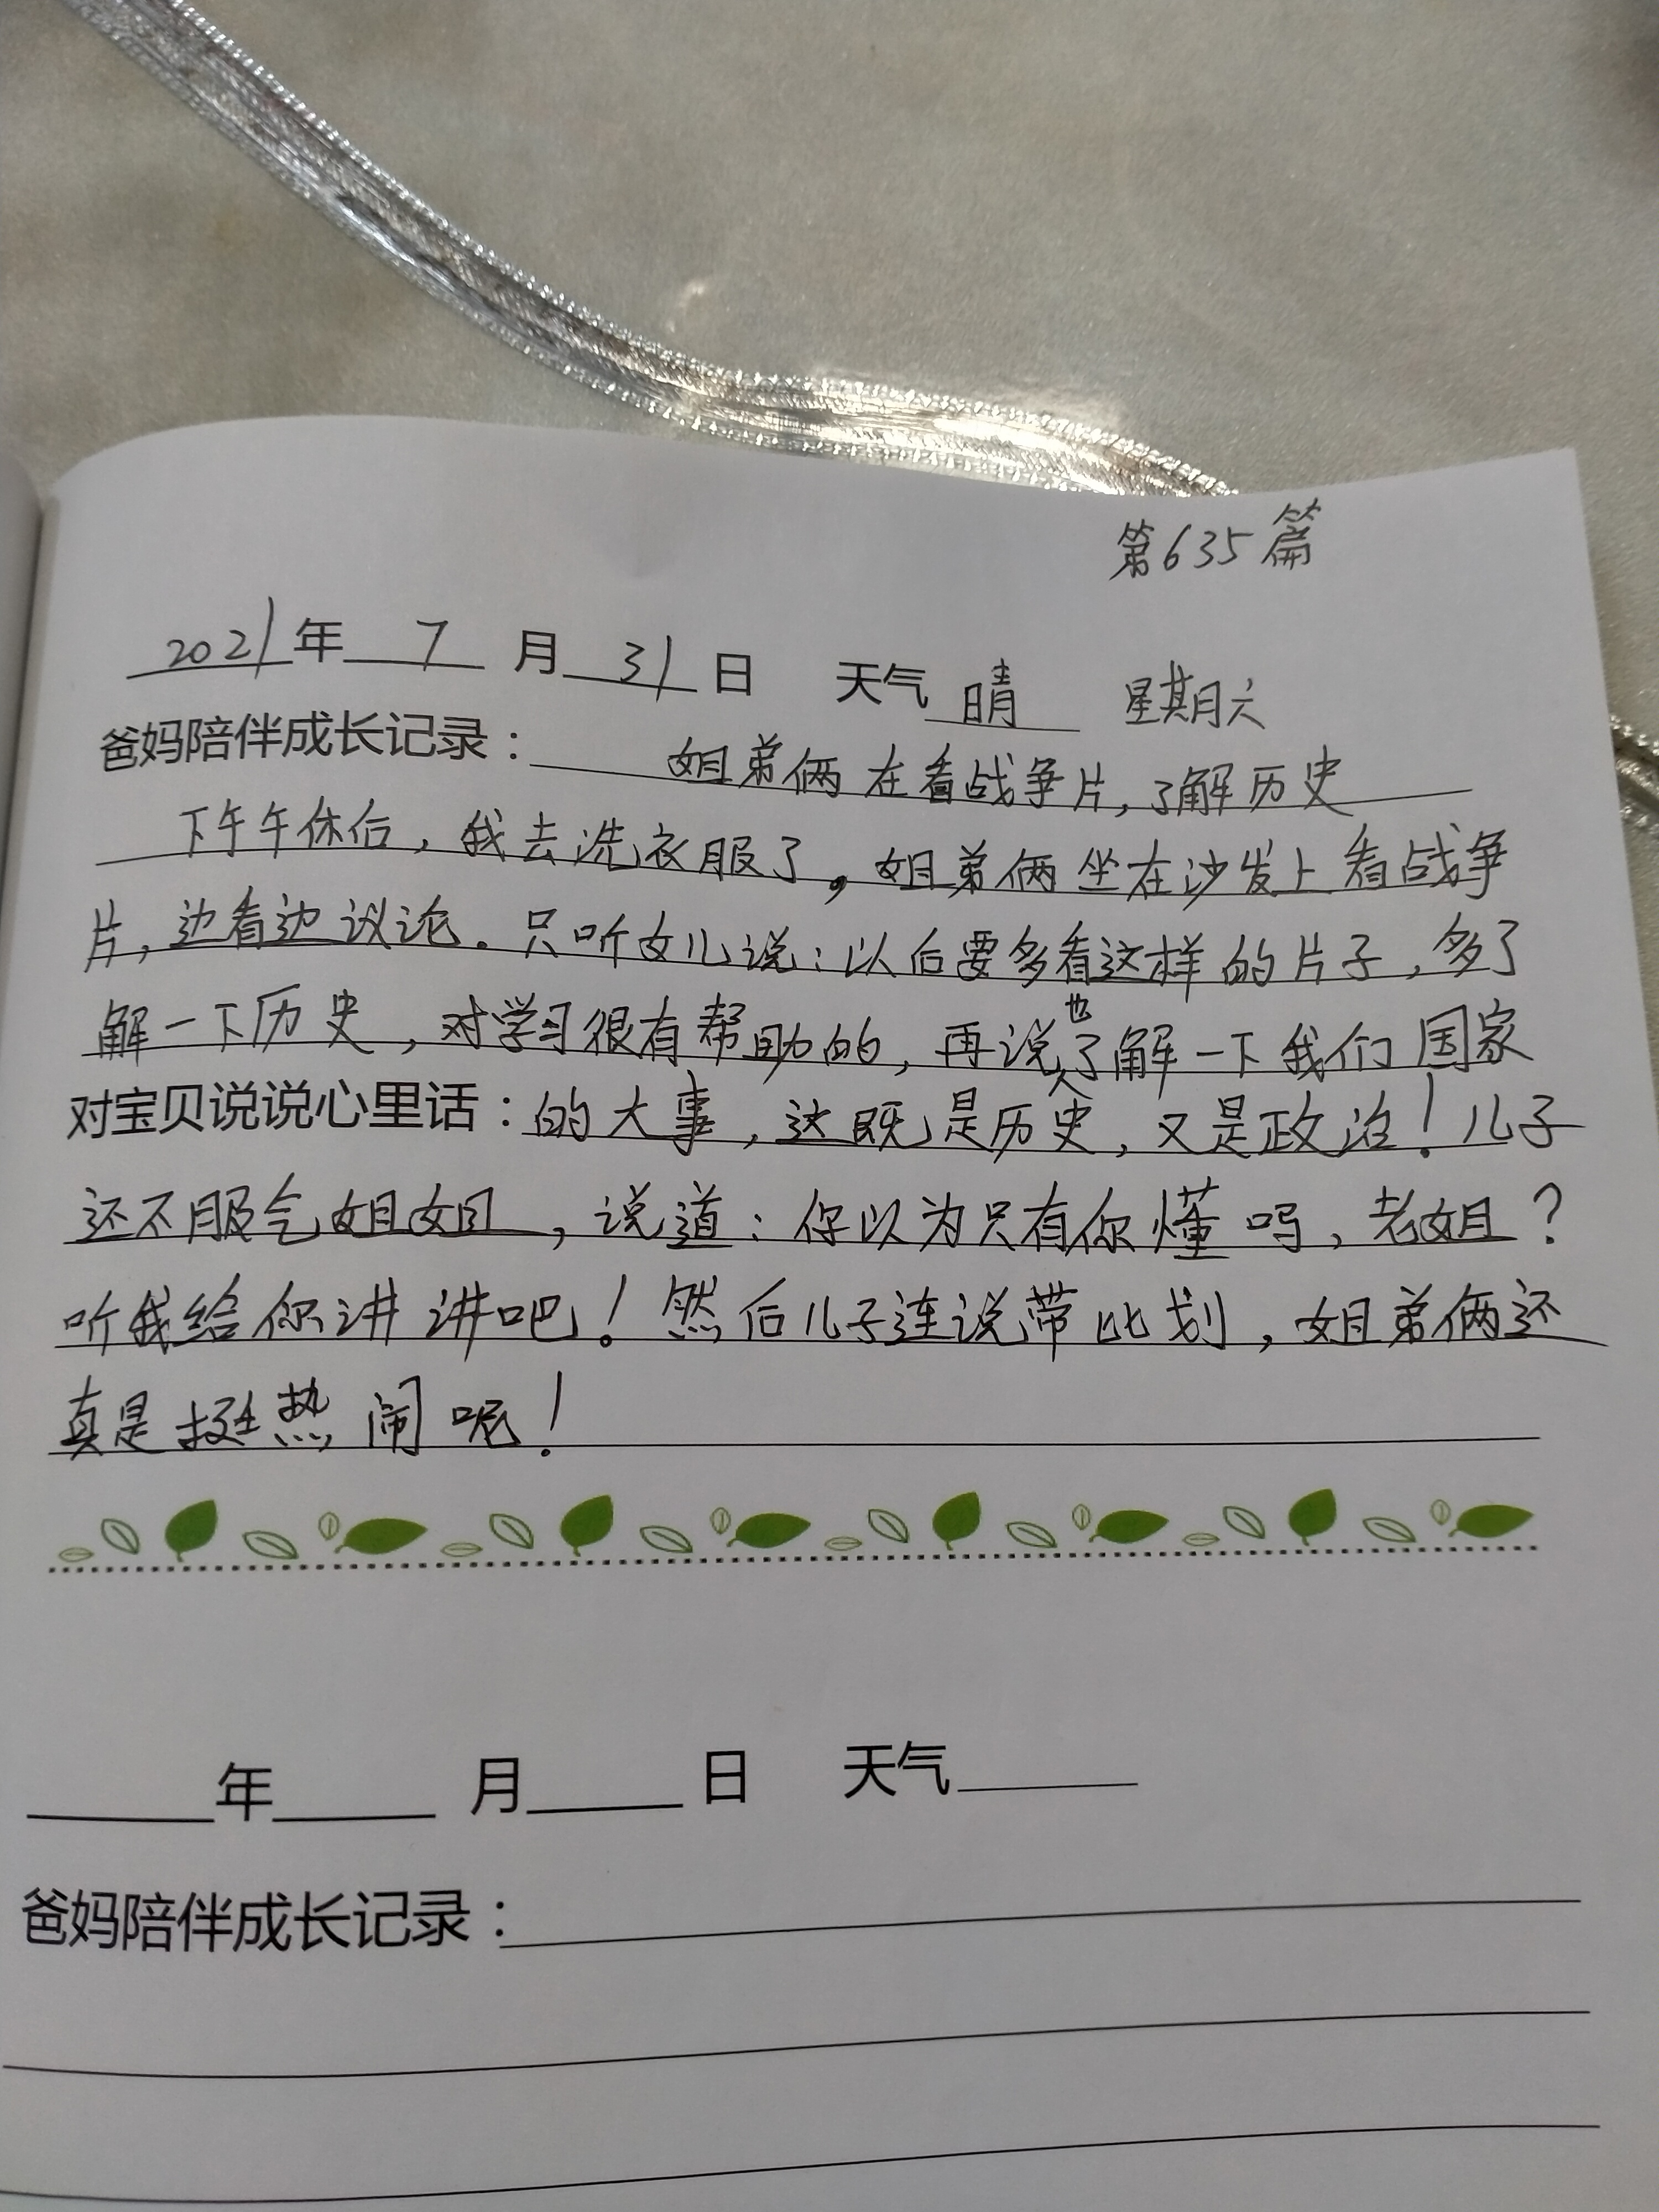 第635篇
2021年 7 月 31 日 天气 晴 星期六
爸妈陪伴成长记录： 姐弟俩在看战争片，了解历史
下午午休后，我去洗衣服了，姐弟俩坐在沙发上看战争
片，边看边议论。只听女儿说：以后要多看这样的片子，多了
解一下历史，对学习很有帮助的，再说也了解一下我们国家
对宝贝说说心里话：的大事，这既是历史，又是政治！儿子
还不服气姐姐，说道：你以为只有你懂吗，老姐？
听我给你讲讲吧！然后儿子连说带比划，姐弟俩还
真是挺热闹呢！
年 月 日 天气
爸妈陪伴成长记录：